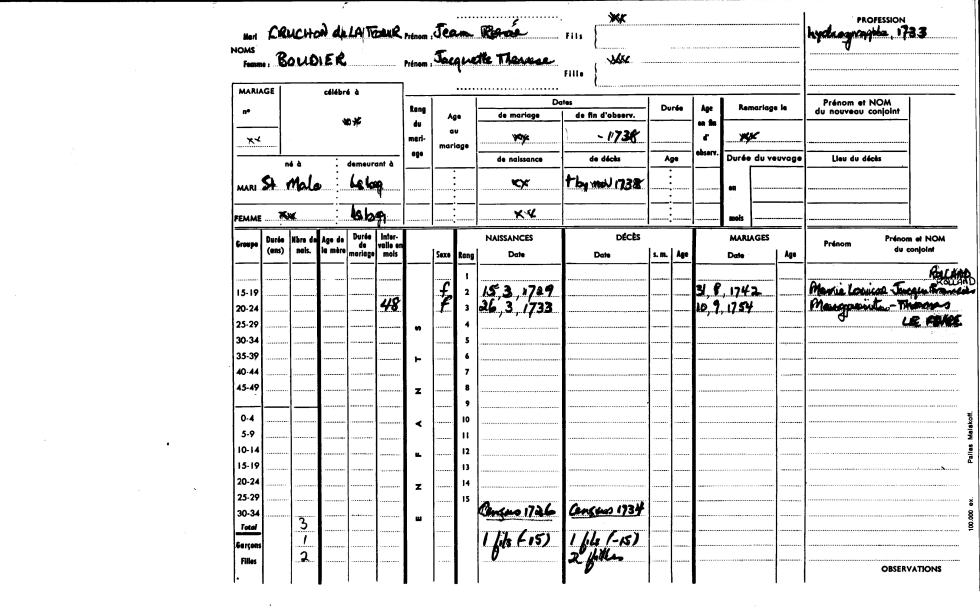 PROFESSION
Mari CRUCHON de LATOUR Prénom : Jean René Fils xx hydrographe, 1733
NOMS
Femme : BOUDIER Prénom : Jacquette Therese Fille xxx
MARIAGE célébré à Rang du mari- age Age au mariage Dates Durée Age en fin d' observ. Remariage le Prénom et NOM du nouveau conjoint
n° de mariage de fin d'observ.
xx xx xx - 1738 xx
de naissance de décès Age Durée du veuvage Lieu du décès
né à demeurant à
MARI St Malo Lsbg xx † by nov 1738 en
FEMME xx Lsbg xx mois
Groupe Durée (ans) Nbre de nais. Age de la mère Durée de mariage Inter- valle en mois Sexe Rang NAISSANCES Date DÉCÈS Date s. m. Age MARIAGES Date Age Prénom Prénom et NOM du conjoint
1 ROLLARD
ROLLARD
15-19 f 2 15, 3, 1729 31, 8, 1742 Marie Louise Jacques Francois
20-24 48 f 3 26, 3, 1733 10, 9, 1754 Marguerite - Thomas
25-29 4 LE
30-34 5
35-39 6
40-44 7
45-49 8
9
0-4 10
5-9 11
10-14 12
15-19 13
20-24 14
25-29 15
30-34 Census 1726 Census 1734
Total 3
Garçons 1 1 fils (-15) 1 fils (-15)
Filles 2 2 filles
ENFANTS
OBSERVATIONS
100.000 ex. Pallas Malakoff.